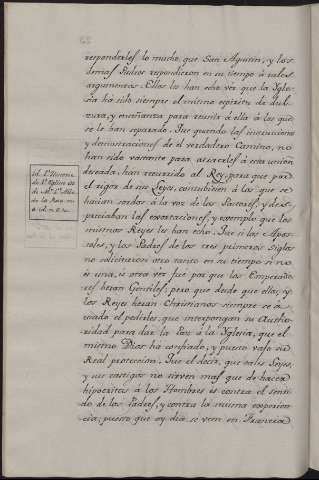 responderles lo mucho, que San Agustin, y los
demas Padres respondieron en su tiempo à tales
argumentos. Ellos les han echo ver que la Igle-
sia há sido siempre el mismo espiritu de dul-
zura, y enseñanza para reunir à ella à los que
se le han separado. Que quando las instrucciones
y demonstraciones de el verdadero Camino, no
han sido vastante para atraerlos à esta union
deseada, han recurrido al Rey, para que por
el rigor de sus Leyes, contubiesen à los que se
hacian sordos à la voz de los Pastores, y des-
preciaban las exortaciones, y exemplo que los
mismos Reyes les han echo. Que si los Apos-
toles, y los Padres de los tres primeros Siglos
no solicitaron otro tanto en su tiempo si no
es una, is otra vez fué por que los Emperado-
res heran Gentiles; pero que desde que ellos, y
los Reyes heran Christianos siempre se à
usado el pedirles, que interpongan su Autho-
ridad para dar la Paz à la Iglesia, que el
mismo Dios há confiado, y puesto vajo su
Real proteccion. Que el decir, que tales Leyes,
y sus castigos no sirven mas que de hacer
hipocritas à los Hombres es contra el senti-
do de los Padres, y contra la misma experien-
cia; puesto que oy dia se vem en Francia